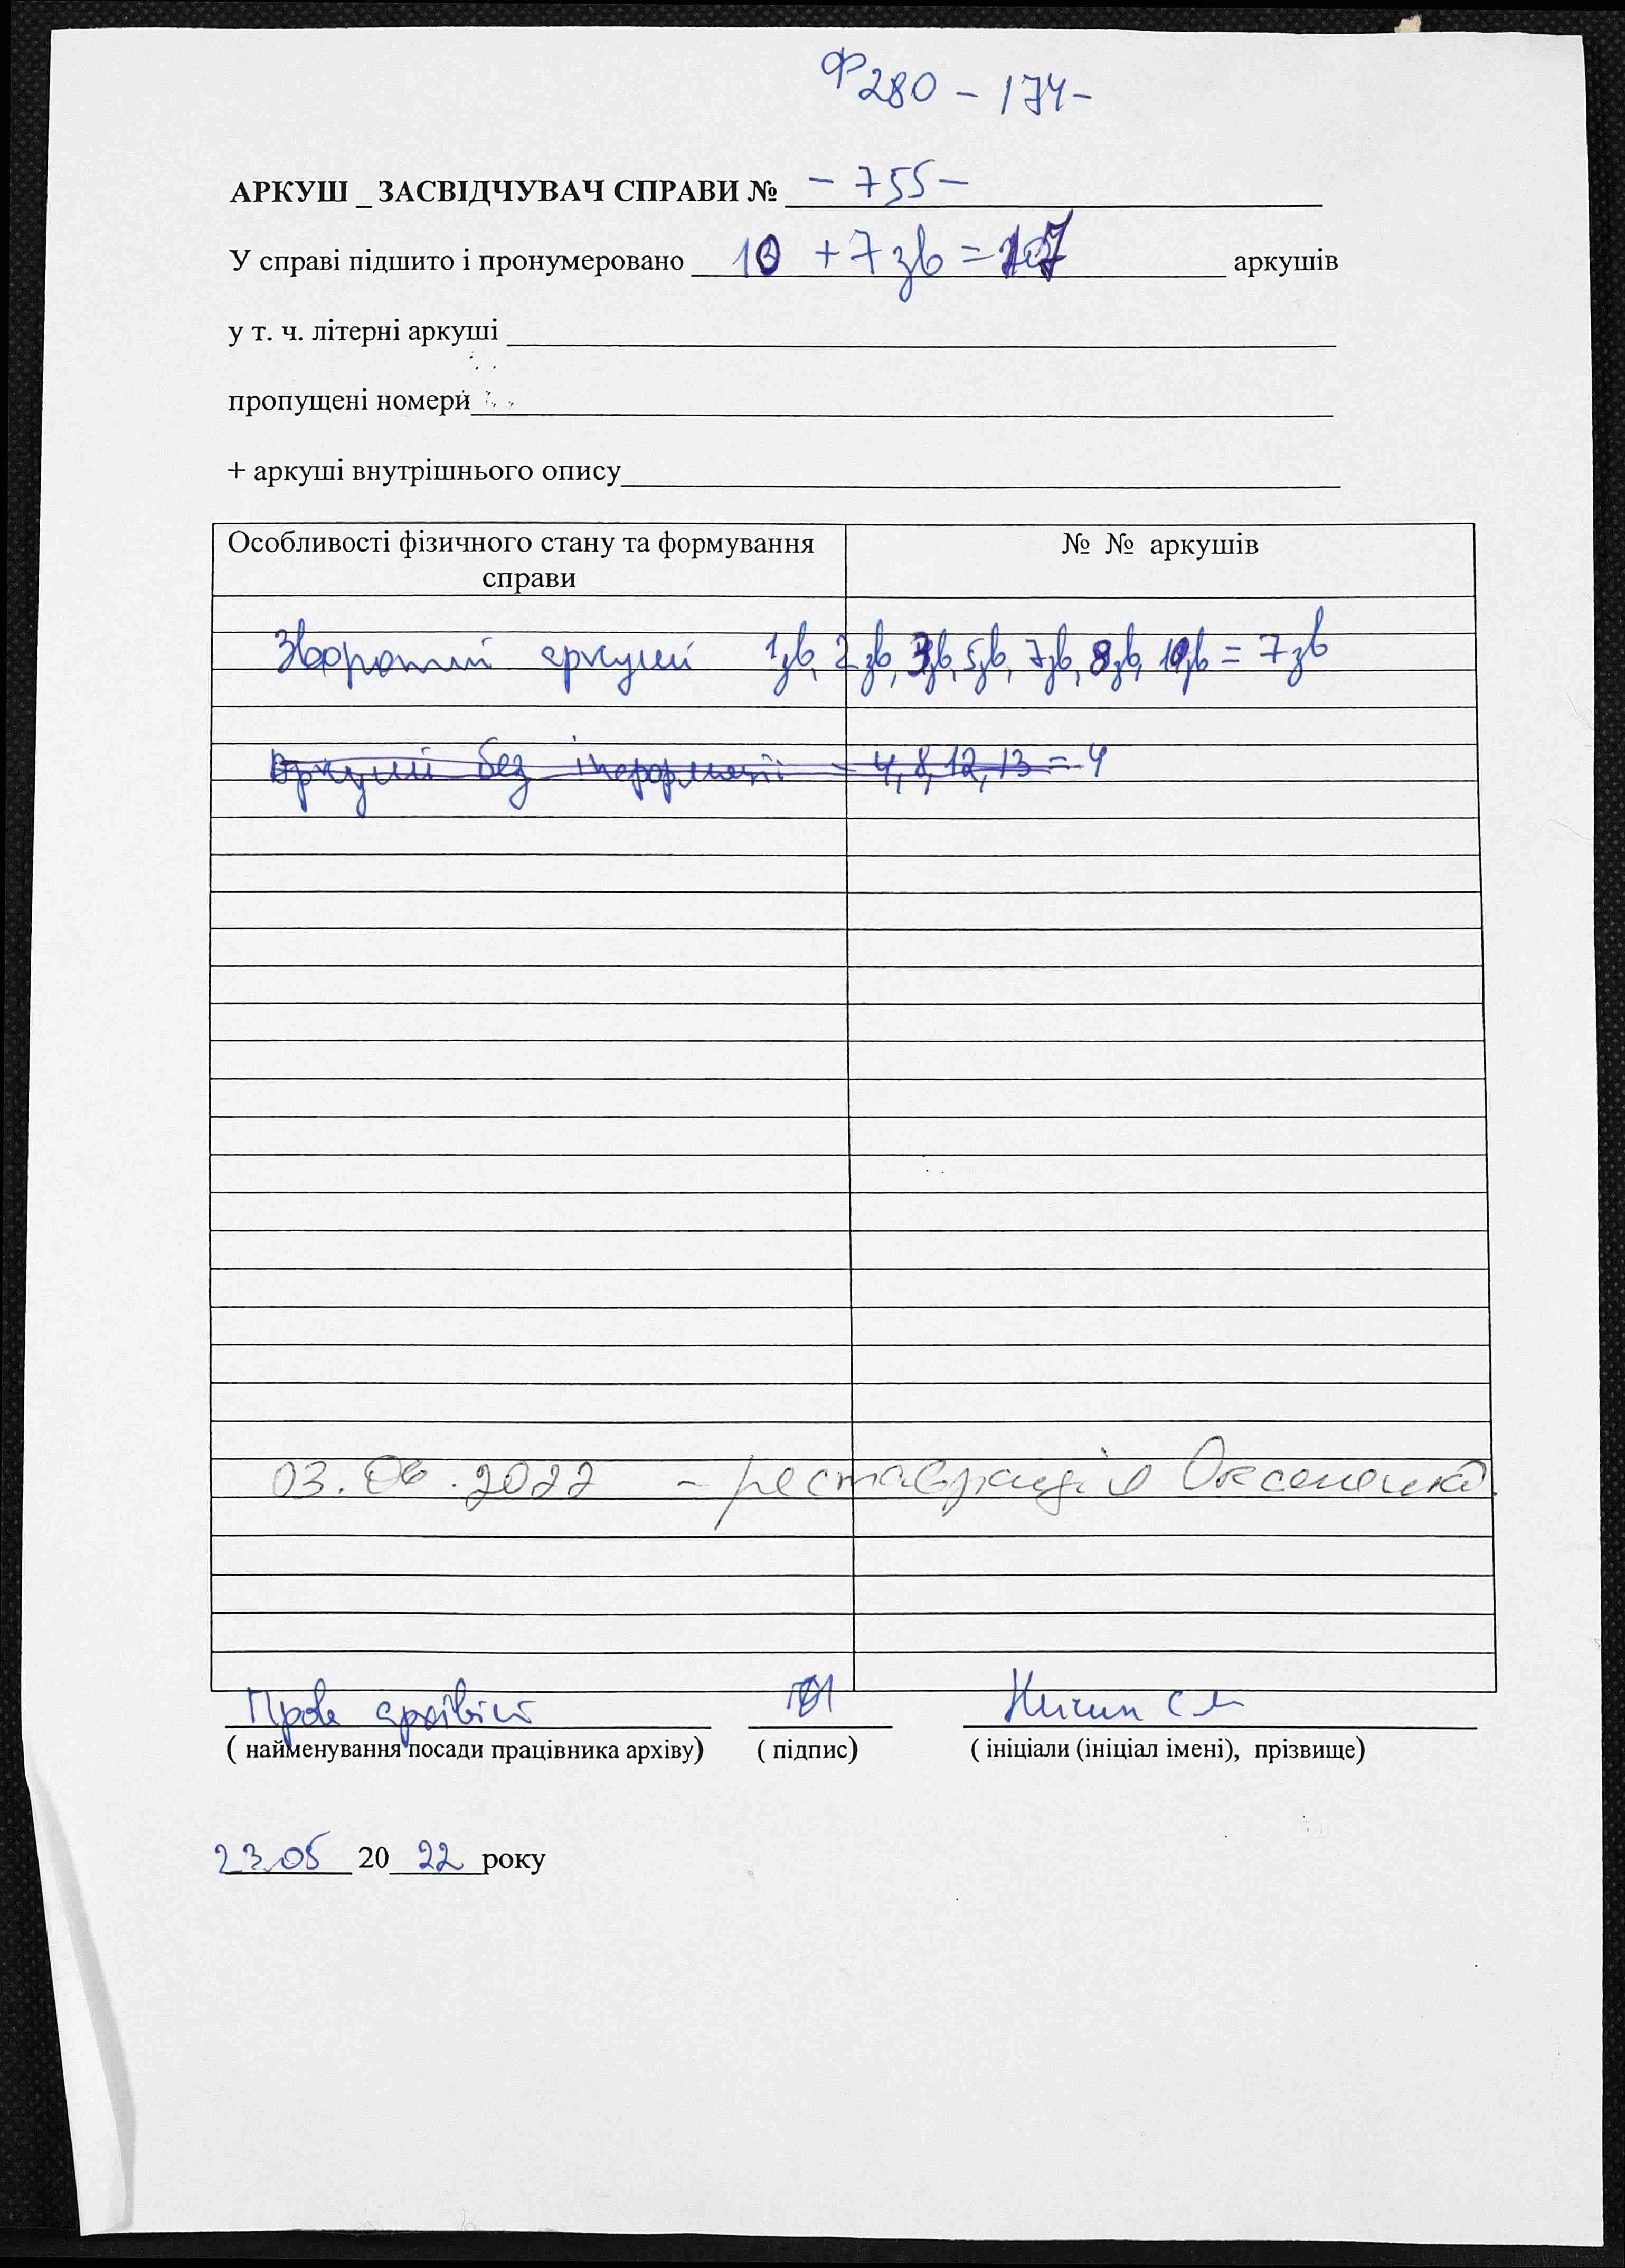 Ф280 – 174 –
АРКУШ _ ЗАСВІДЧУВАЧ СПРАВИ № – 755 –
У справі підшито і пронумеровано 10 + 7 зв = 17 аркушів
у т. ч. літерні аркуші
пропущені номери
+ аркуші внутрішнього опису
Особливості фізичного стану та формування справи
№ № аркушів
Зворотні аркуші 1зв, 2зв, 3зв, 5зв, 7зв, 8зв, 10зв = 7зв
Аркуші без інформації – 4, 8, 12, 13 = 4
03.06.2022 – реставрація Оксененко
Пров архівіст
( найменування посади працівника архіву) ( підпис) ( ініціали (ініціал імені), прізвище)
23.05 2022 року